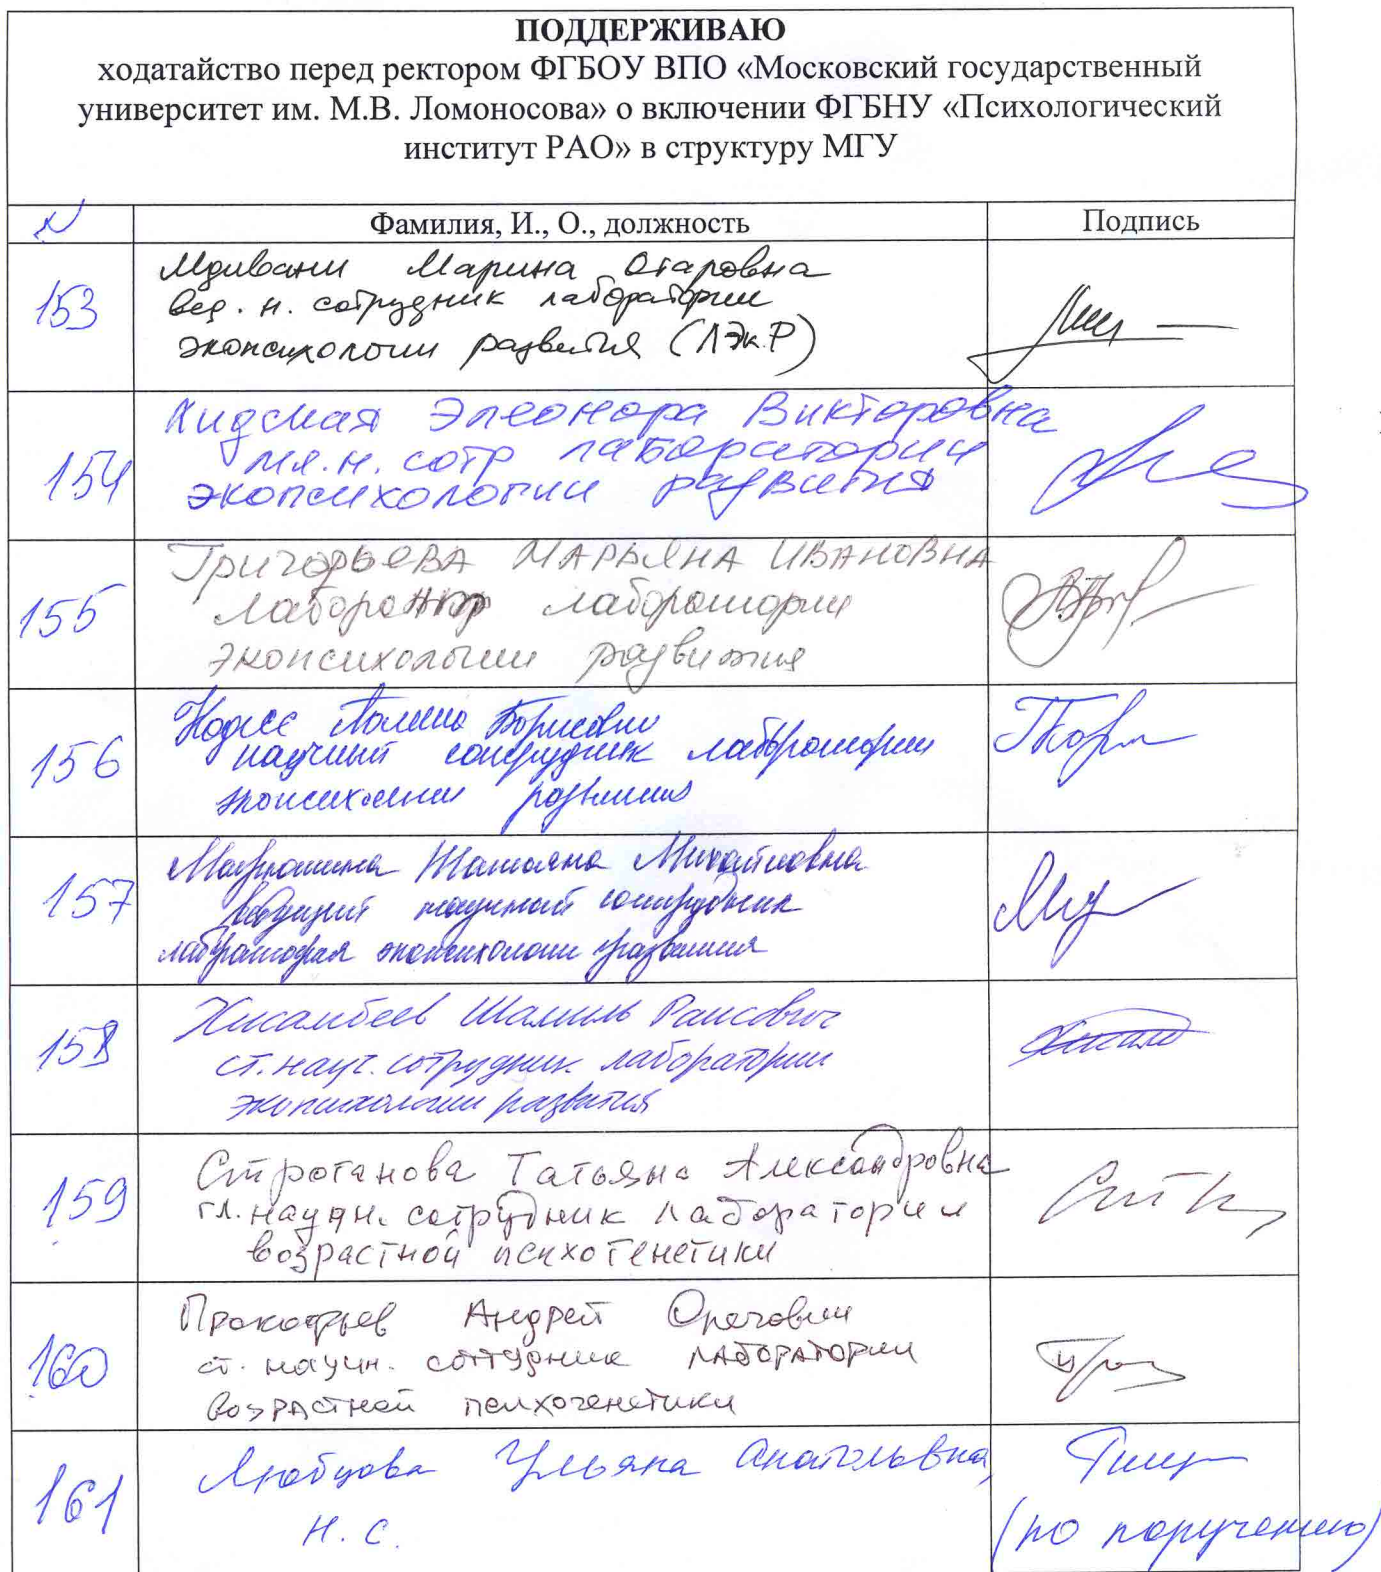 ПОДДЕРЖИВАЮ
ходатайство перед ректором ФГБОУ ВПО «Московский государственный
университет им. М.В. Ломоносова» о включении ФГБНУ «Психологический
институт РАО» в структуру МГУ
N Фамилия, И., О., должность Подпись
153
Мдивани Марина Отаровна
вед. н. сотрудник лаборатории
экопсихологии развития (ЛЭкР)
154
Хидская Элеонора Викторовна
мл.н. сотр лаборатории
экопсихологии развития
155
Григорьева Марьяна Ивановна
лаборант лаборатории
экопсихологии развития
156
Кодесс Полина Борисовна
научный сотрудник лаборатории
экопсихологии развития
157
Татьяна Михайловна
ведущий научный сотрудник
лаборатория экопсихологии развития
158
Хисамбеев Шамиль Раисович
ст. науч. сотрудник лаборатории
экопсихологии развития
159
Строганова Татьяна Александровна
гл. научн. сотрудник лаборатории
возрастной психогенетики
160
Прокофьев Андрей Олегович
ст. научн. сотрудник лаборатории
возрастной психогенетики
161
Любцова Ульяна Анатольевна,
н. с.
(по поручению)